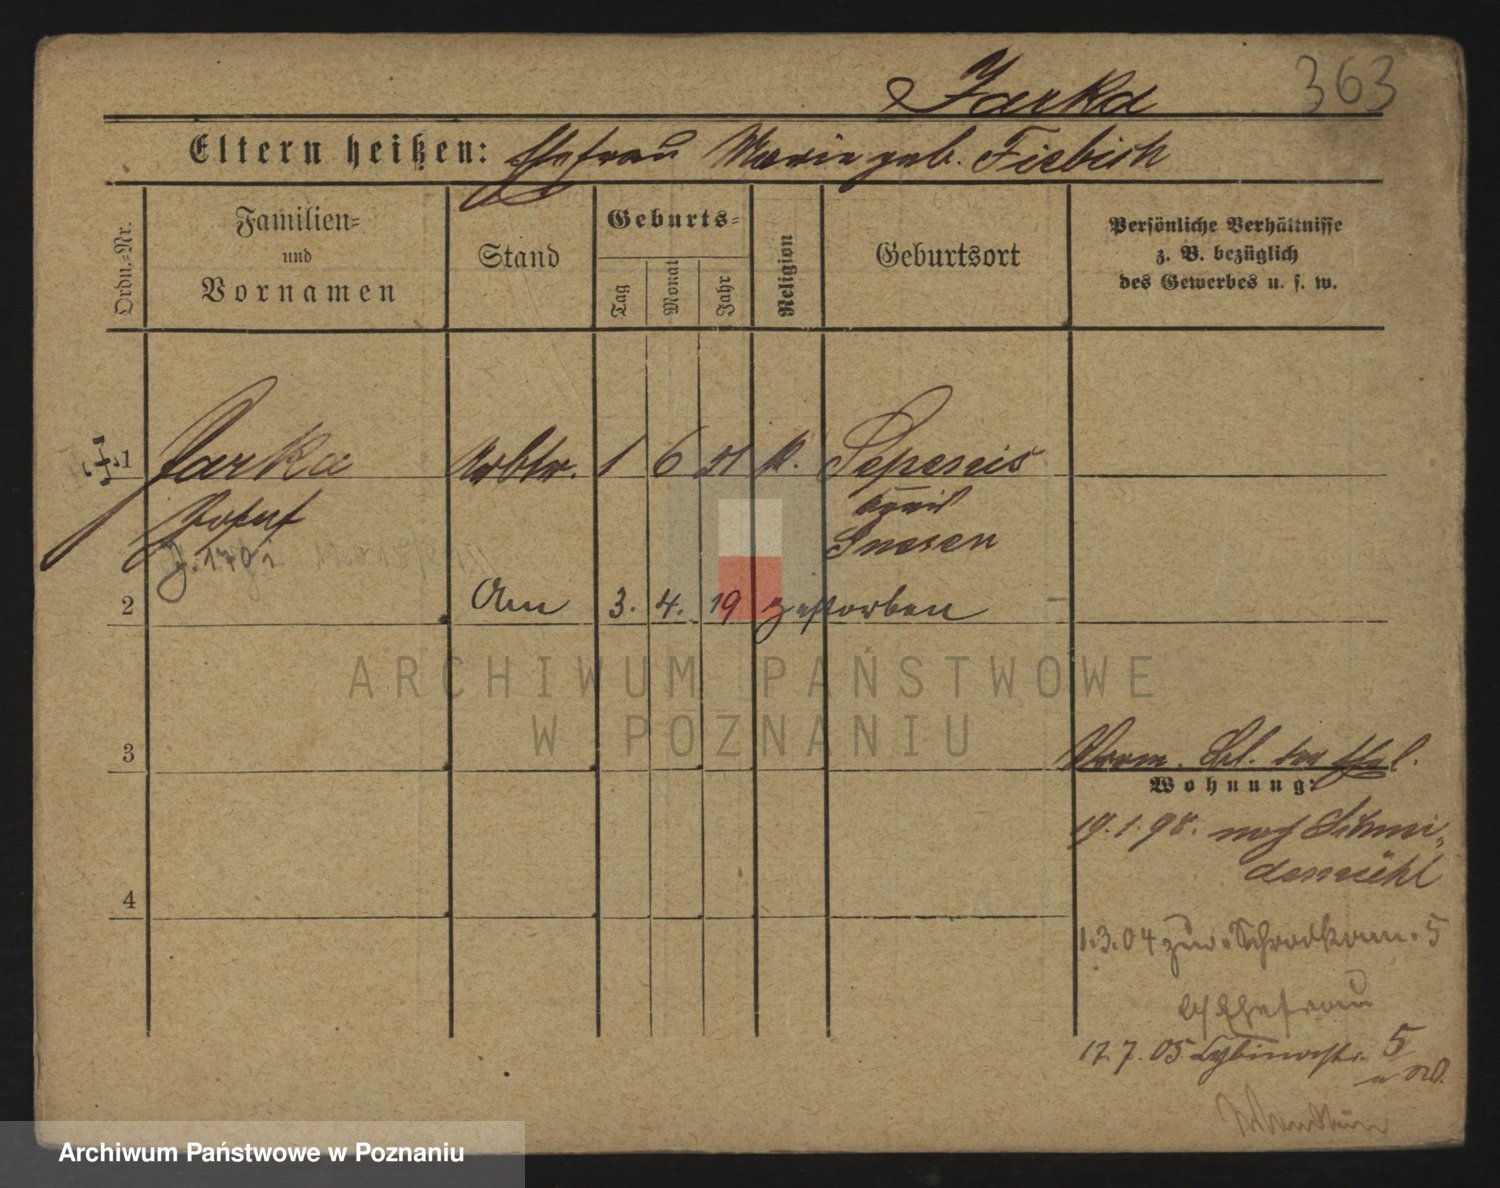 Jarka 363
Eltern heißen: Ehefrau Marie geb. Fiebich
Ordn.-Nr.
Familien-
und
Vornamen
Stand
Geburts-
Tag
Monat
Jahr
Religion
Geburtsort
Persönliche Verhältnisse
z. B. bezüglich
des Gewerbes u. s. w.
1 Jarka Arbtr. 1 6 51 k.
Josef Kreis
Gnesen
2 Am 3. 4. 19 gestorben
ARCHIWUM PAŃSTWOWE
W POZNANIU
3
Wohnung:
19.1.98. nach Schnei-
demühl
4
1.3.04 zur. Schrodkam. 5
Ehefrau
12.7.05 Cybinastr. 5
Archiwum Państwowe w Poznaniu